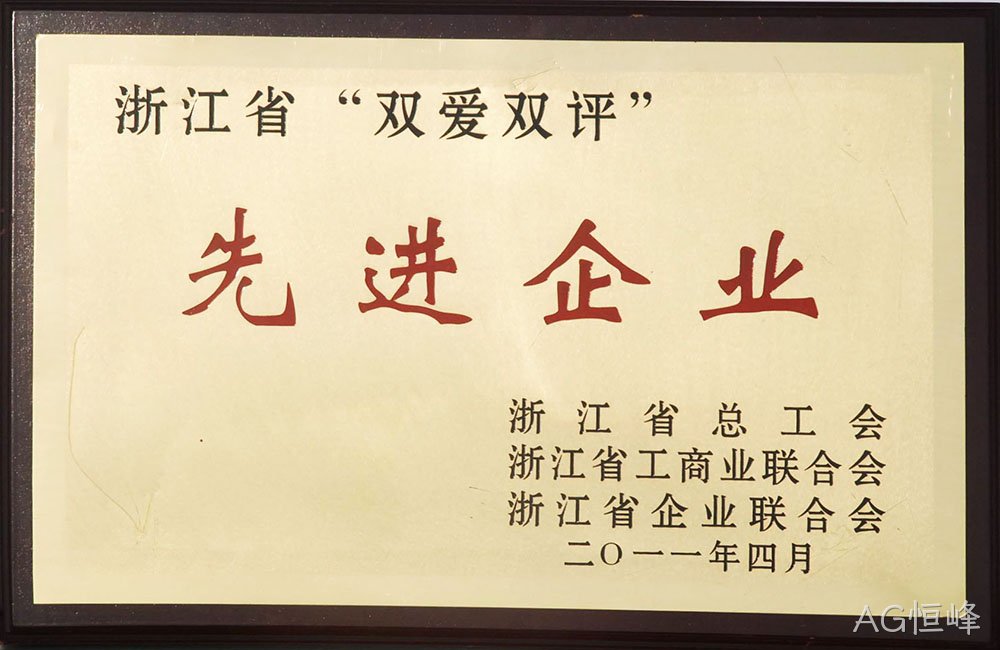 浙江省“双爱双评”
先进企业
浙江省总工会
浙江省工商业联合会
浙江省企业联合会
二〇一一年四月
AG恒峰